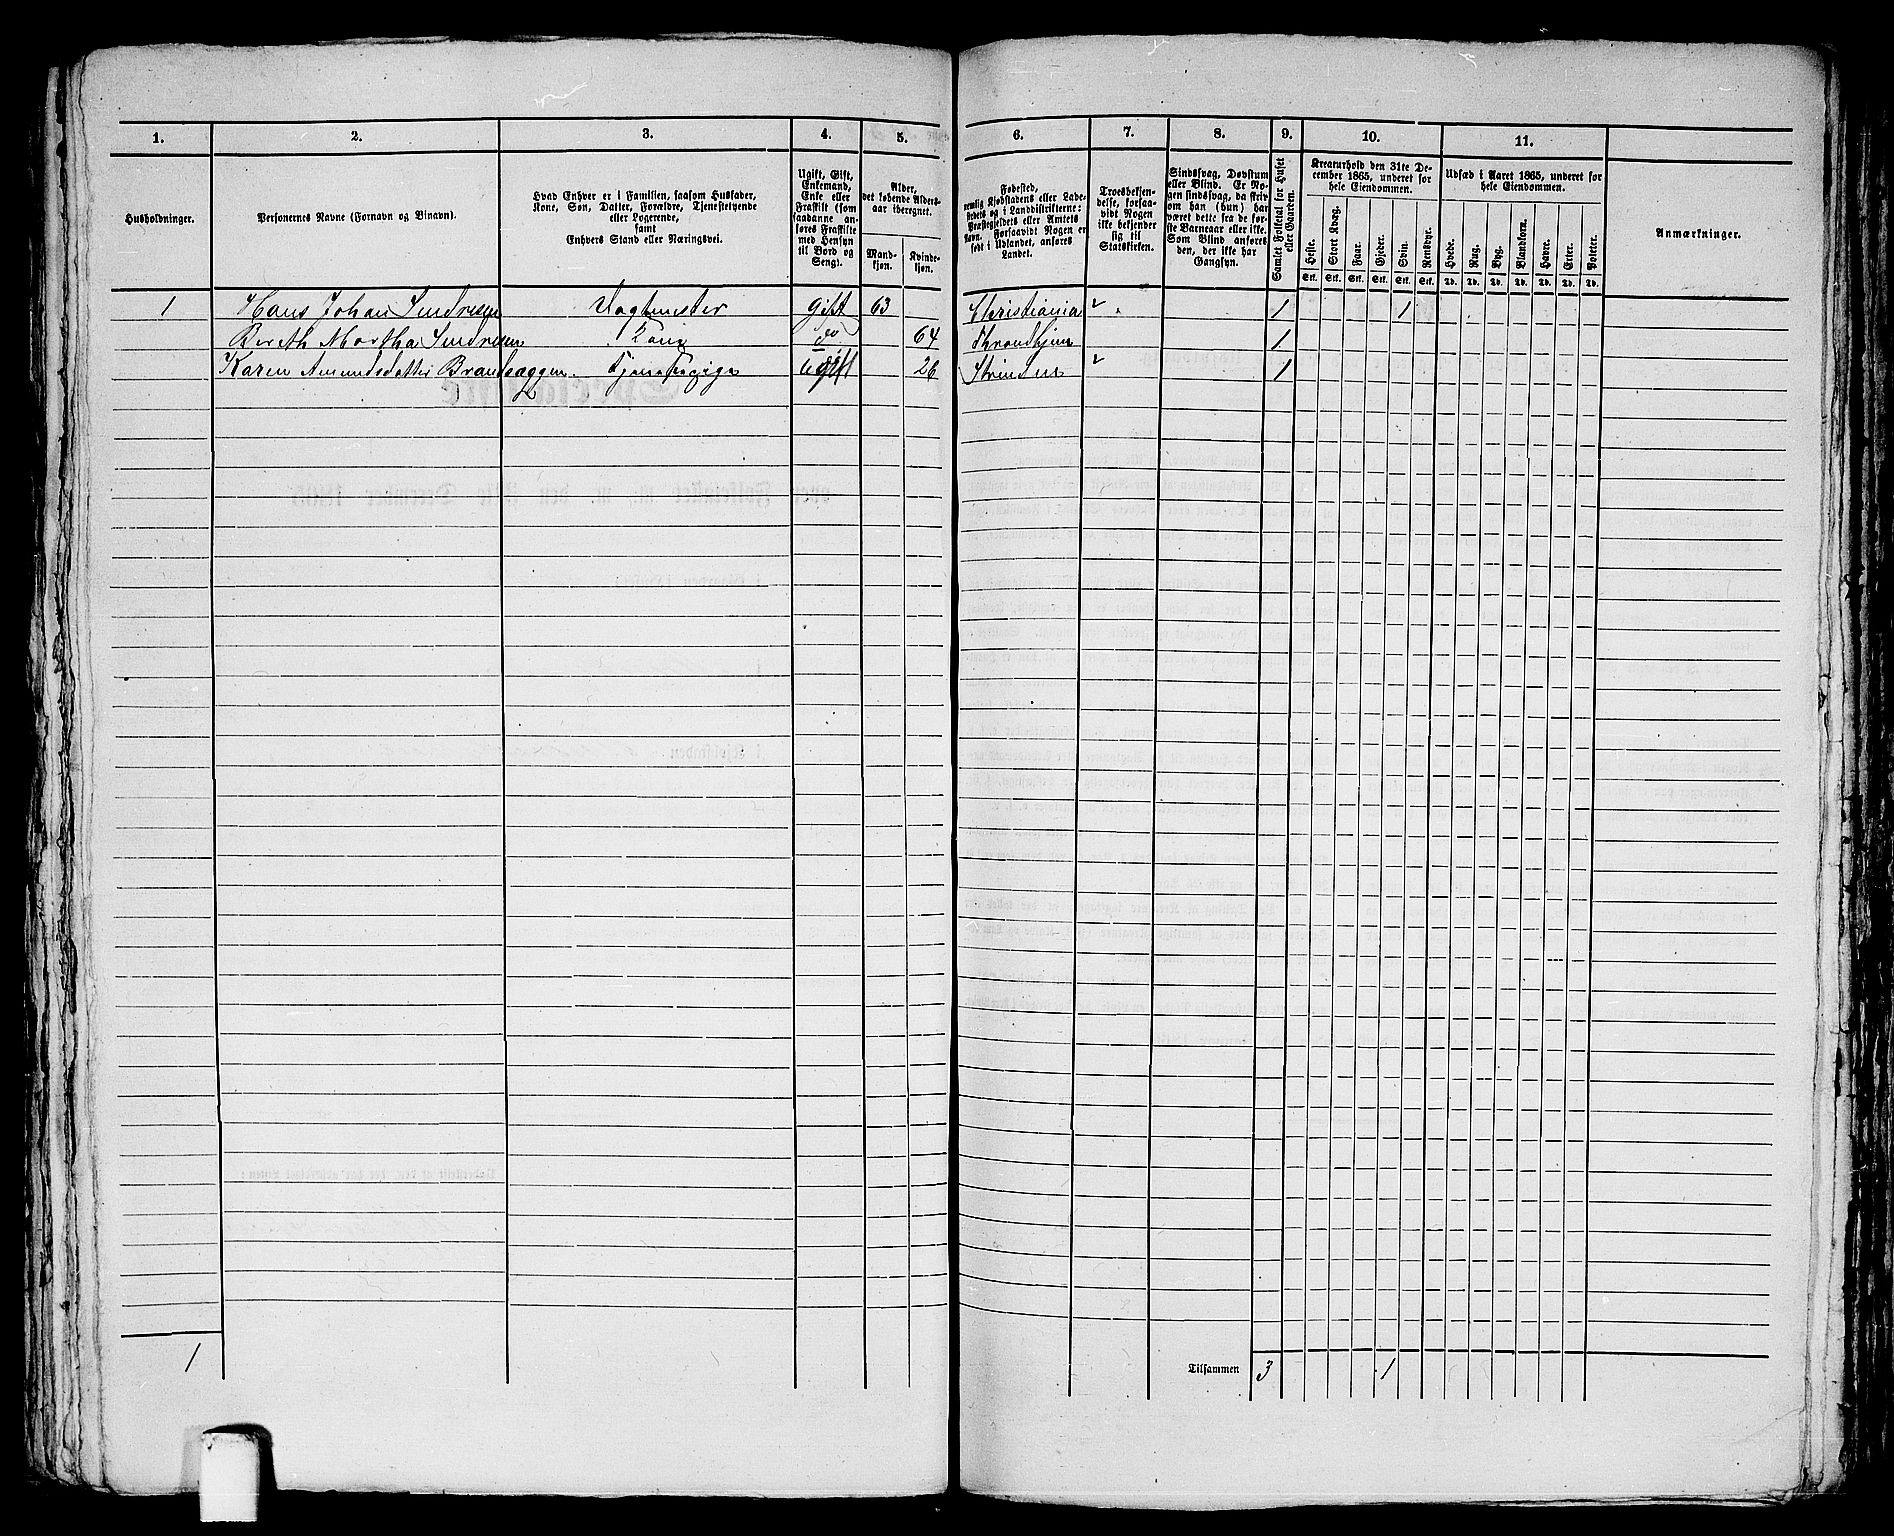 1. 2. 3. 4. 5. 6. 7. 8. 9. 10. 11.
Husholdninger.
Personernes Navne (Fornavn og Binavn).
Hvad Enhver er i Familien, saasom Husfader,
Kone, Søn, Datter, Forældre, Tjenestetyende
eller Logerende,
samt
Enhvers Stand eller Næringsvei.
Ugift, Gift,
Enkemand,
Enke eller
Fraskilt (som
saadanne an-
føres Fraskilte
med Hensyn
til Bord og
Seng).
Alder,
det løbende Alders-
aar iberegnet.
Mand-
kjøn.
Kvinde-
kjøn.
Fødested,
nemlig Kjøbstadens eller Lade-
stedets og i Landdistrikterne:
Præstegjeldets eller Amtets
Navn. Forsaavidt Nogen er
født i Udlandet, anføres
Landet.
Troesbekjen-
delse, forsaa-
vidt Nogen
ikke bekjender
sig til
Statskirken.
Sindssvag, Døvstum
eller Blind. Er No-
gen sindssvag, da skriv
om han (hun) har
været dette fra de før-
ste Barneaar eller ikke.
Som Blind anføres
den, der ikke har
Gangsyn.
Samlet Folketal for Huset
eller Gaarden.
Kreaturhold den 31te De-
cember 1865, underet for
hele Eiendommen.
Heste. Stort Kvæg. Faar. Gjeder. Svin. Rensdyr.
Stk. Stk. Stk. Stk. Stk. Stk.
Udsæd i Aaret 1865, underet for
hele Eiendommen.
Hvede. Rug. Byg. Blandkorn. Havre. Erter. Poteter.
Td. Td. Td. Td. Td. Td. Td.
Anmærkninger.
1 Hans Johan Sindresen Vagtmester Gift 63 Christiania 1 1
Bereth Martha Sindresen Kone do 64 Throndhjem 1
Karen Amundsdatter Tjenestepige Ugift 26 Strinden 1
1 Tilsammen 3 1